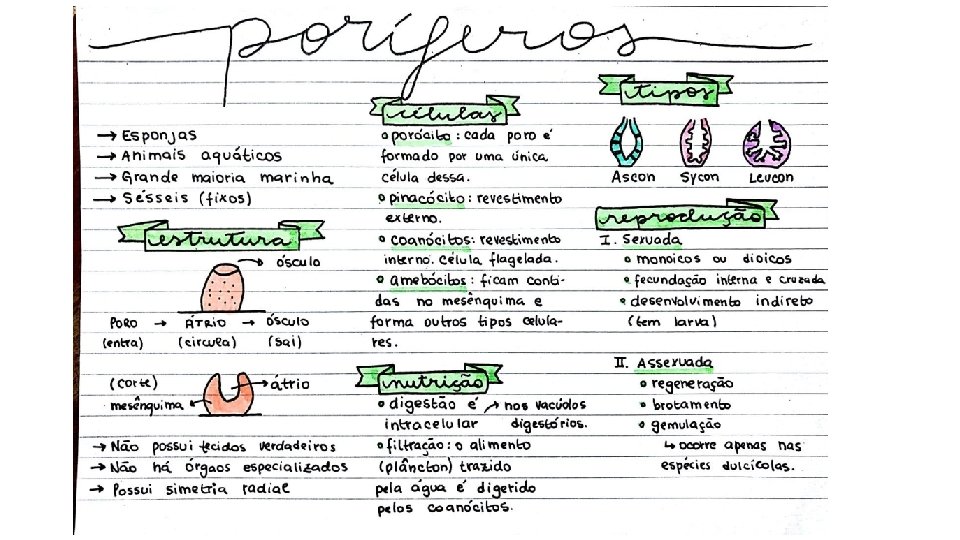 poríferos
→ Esponjas
→ Animais aquáticos
→ Grande maioria marinha
→ Sésseis (fixos)
estrutura
ósculo
PORO → ÁTRIO → ósculo
(entra) (circula) (sai)
(corte)
átrio
mesênquima
→ Não possui tecidos verdadeiros
→ Não há órgãos especializados
→ Possui simetria radial
células
porócito: cada poro é
formado por uma única
célula dessa.
pinacócito: revestimento
externo.
coanócitos: revestimento
interno. célula flagelada.
amebócitos: ficam conti-
das no mesênquima e
forma outros tipos celula-
res.
nutrição
digestão é → nos vacúolos
intracelular digestórios.
filtração: o alimento
(plâncton) trazido
pela água é digerido
pelos coanócitos.
tipos
Ascon Sycon Leucon
reprodução
I. Sexuada
monoicos ou dioicos
fecundação interna e cruzada
desenvolvimento indireto
(tem larva)
II. Assexuada
regeneração
brotamento
gemulação
↳ ocorre apenas nas
espécies dulcícolas.